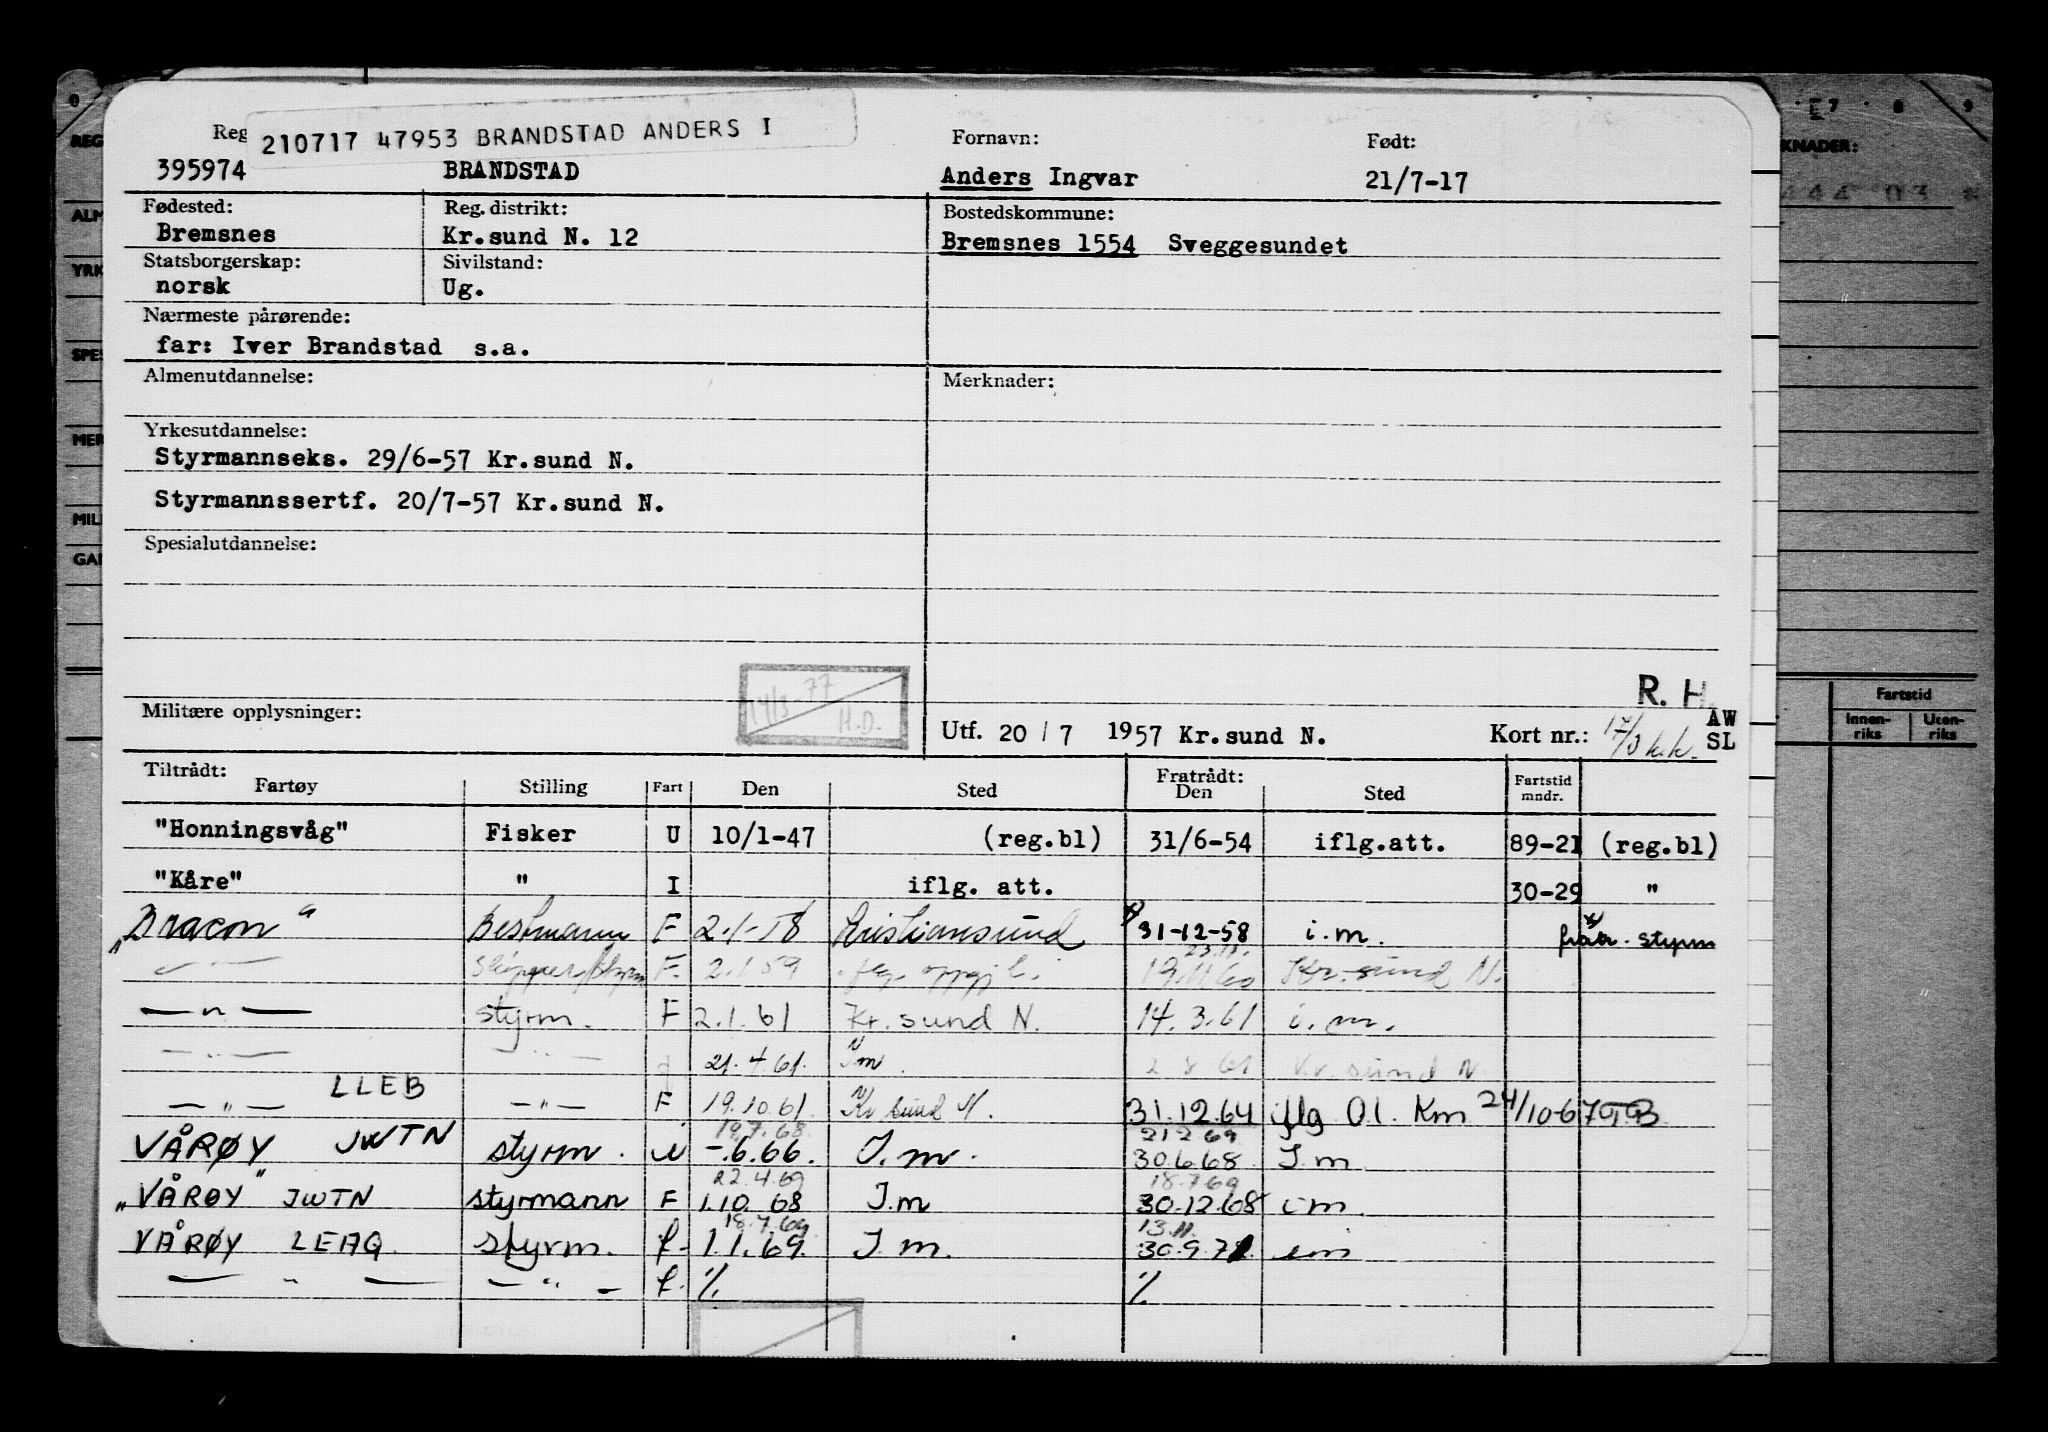 210717 47953 BRANDSTAD ANDERS I
Reg Fornavn: Født:
395974 BRANDSTAD Anders Ingvar 21/7-17
Fødested: Reg. distrikt: Bostedskommune:
Bremsnes Kr.sund N. 12 Bremsnes 1554 Sveggesundet
Statsborgerskap: Sivilstand:
norsk Ug.
Nærmeste pårørende:
far: Iver Brandstad s.a.
Almenutdannelse: Merknader:
Yrkesutdannelse:
Styrmannseks. 29/6-57 Kr.sund N.
Styrmannssertf. 20/7-57 Kr.sund N.
Spesialutdannelse:
14/3-77 H.D.
R. H.
Militære opplysninger: Utf. 20 / 7 1957 Kr.sund N. Kort nr.: 17/3 k.k. AW SL
Tiltrådt: Fratrådt:
Fartøy Stilling Fart Den Sted Den Sted Fartstid mndr.
"Honningsvåg" Fisker U 10/1-47 (reg.bl) 31/6-54 iflg.att. 89-21 (reg.bl)
"Kåre" " I iflg. att. 30-29 "
"Dracon" Bestmann F 2.1-58 Kristiansund 31-12-58 i.m. fratr. styrm
— " — skipper/styrm F. 2.1.59 23.11. 19.11.60 Kr.sund N.
— " — styrm. F 2.1.61 Kr.sund N. 14.3.61 i.m.
— " — — " — 21.4.61. I m. 2.8.61 Kr.sund N.
— " — LLEB — " — F 19.10.61. Kr sund N. 31.12.64 iflg Ol. Km 24/10-67
19.7.68 21 2 69
VÅRØY JWTN styrm. U -.6.66. I.m. 30.6.68 I.m
22.4.69 18.7.69
"VÅRØY" JWTN styrmann F 1.10.68 I.m 30.12.68 i m.
18.7.69 13.11.
VÅRØY LEAQ styrm. f. 1.1.69. I m. 30.9.71. im
— " — — " — f. %. %.
REG
ALM
YRK
SPES
MER
MIL
GAN
KNADER:
Fartstid
Innenriks Utenriks